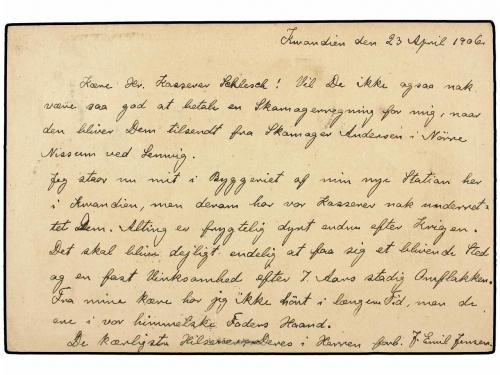 Kwandien den 23 April 1906.
Kære Hr. Kasserer Schlesch! Vil De ikke ogsaa nok
være saa god at betale en Skomagerregning for mig, naar
den bliver Dem tilsendt fra Skomager Andersen i Nörre
Nissum ved Lemvig.
Jeg staar nu midt i Byggeriet af min nye Station her
i Kwandien, men derom har vor Kasserer nok underret-
tet Dem. Alting er frygtelig dyrt endnu efter Krigen.
Det skal blive dejligt endelig at faa sig et blivende Sted
og en fast Virksomhed efter 7 Aars stadig Omflakken.
Fra mine kære har jeg ikke hört i længere Tid, men de
ere i vor himmelske Faders Haand.
De kærligste Hilsener Deres i Herren forb. J. Emil Jensen.